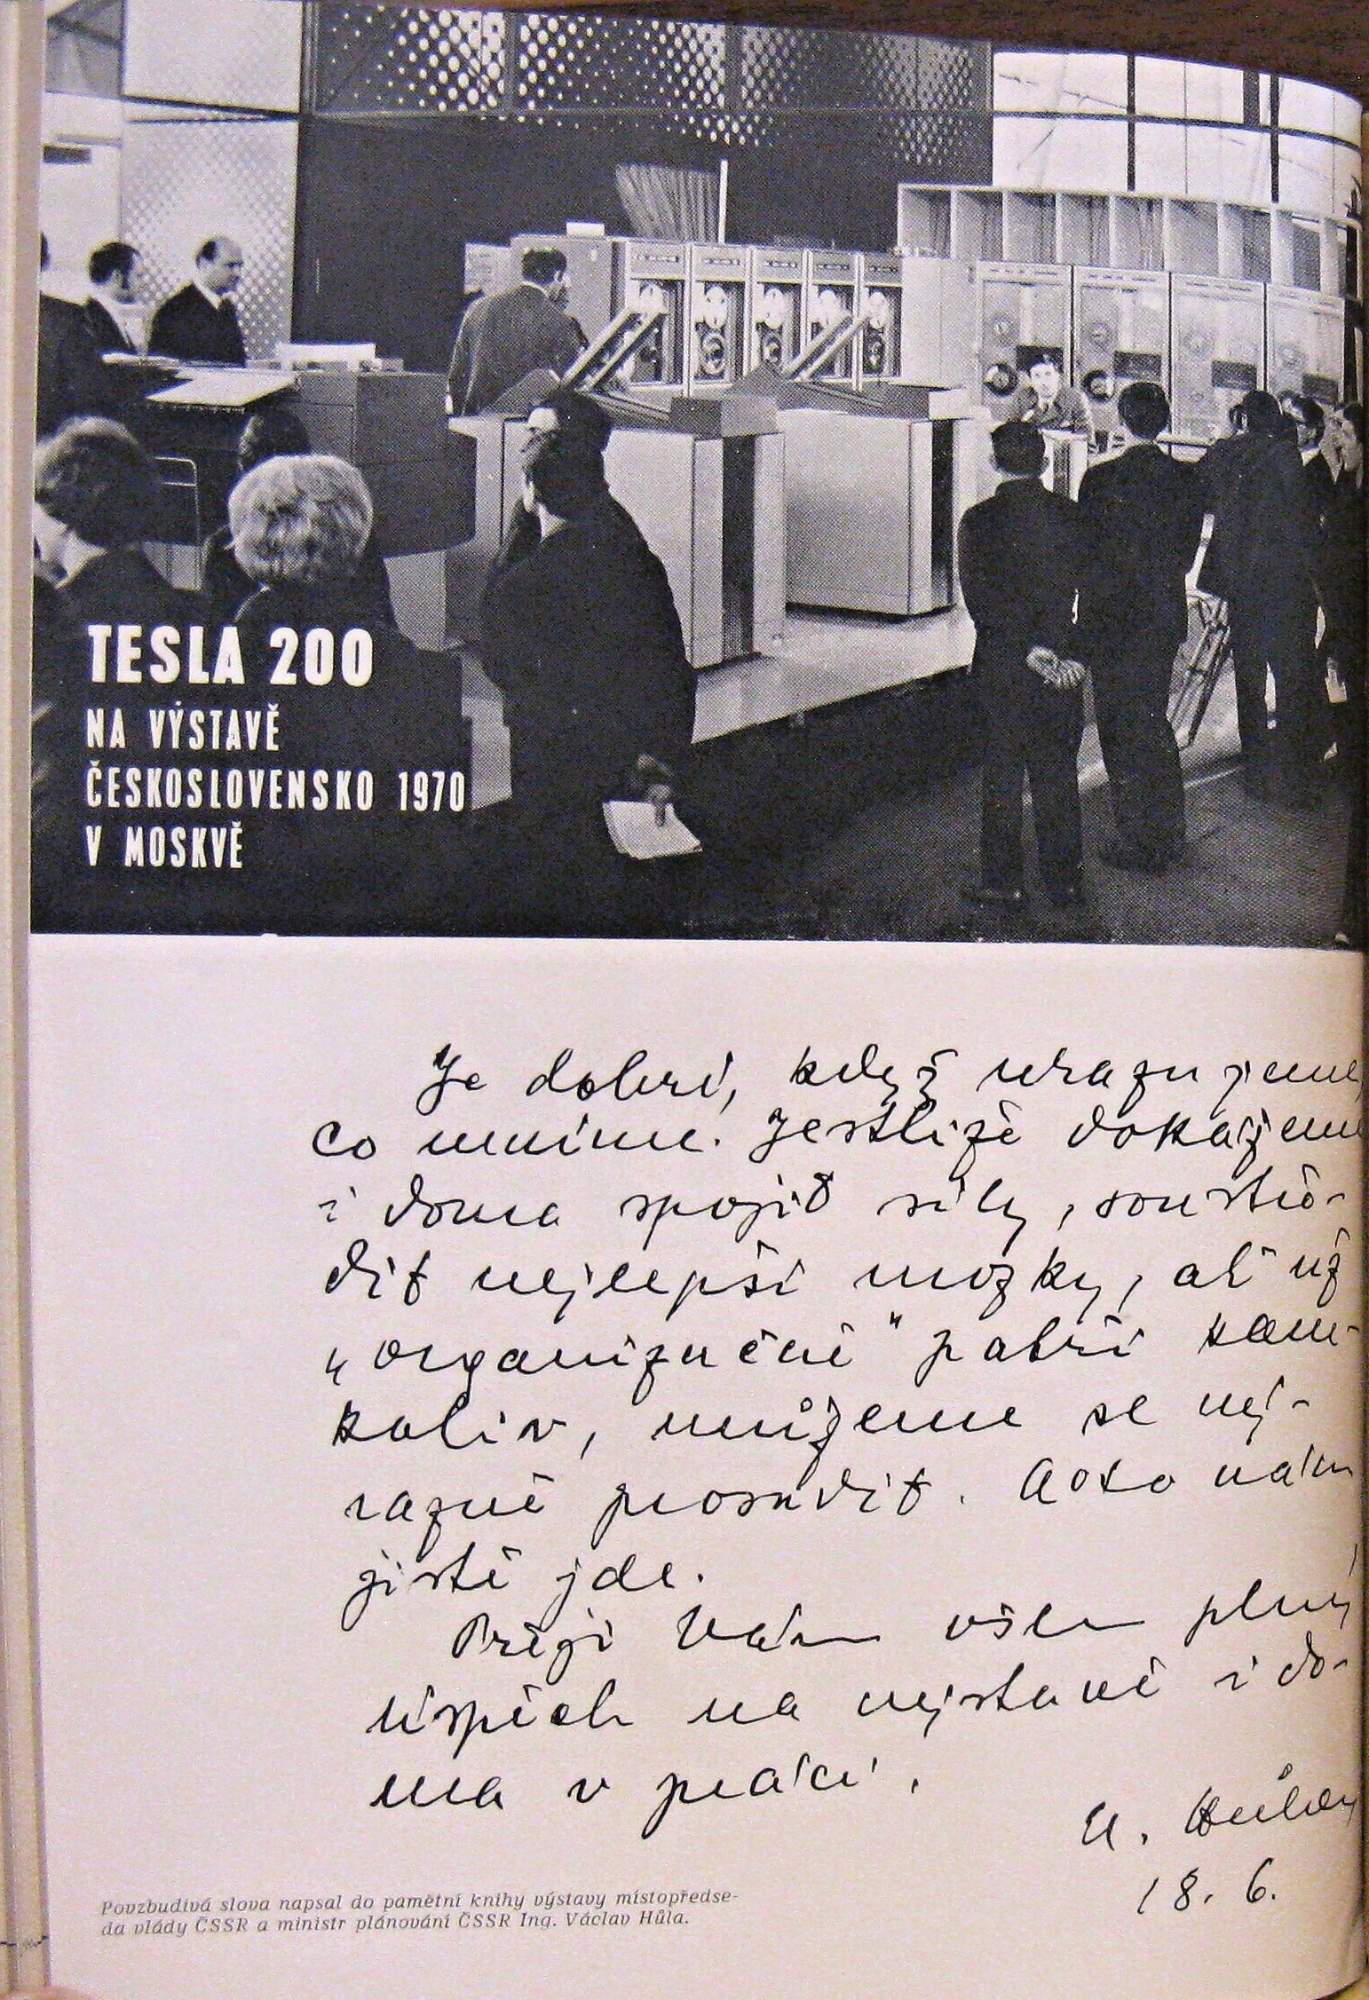 TESLA 200
NA VÝSTAVĚ
ČESKOSLOVENSKO 1970
V MOSKVĚ
Je dobré, když ukazujeme,
co umíme. Jestliže dokážeme
i doma spojit síly, soustře-
dit nejlepší mozky, ať už
„organizačně" patří kam-
koliv, můžeme se vý-
razně prosadit. A o to nám
jistě jde.
Přeji Vám všem plný
úspěch na výstavě i do-
ma v práci.
V. Hůla
18. 6.
Povzbudivá slova napsal do pamětní knihy výstavy místopředse-
da vlády ČSSR a ministr plánování ČSSR Ing. Václav Hůla.